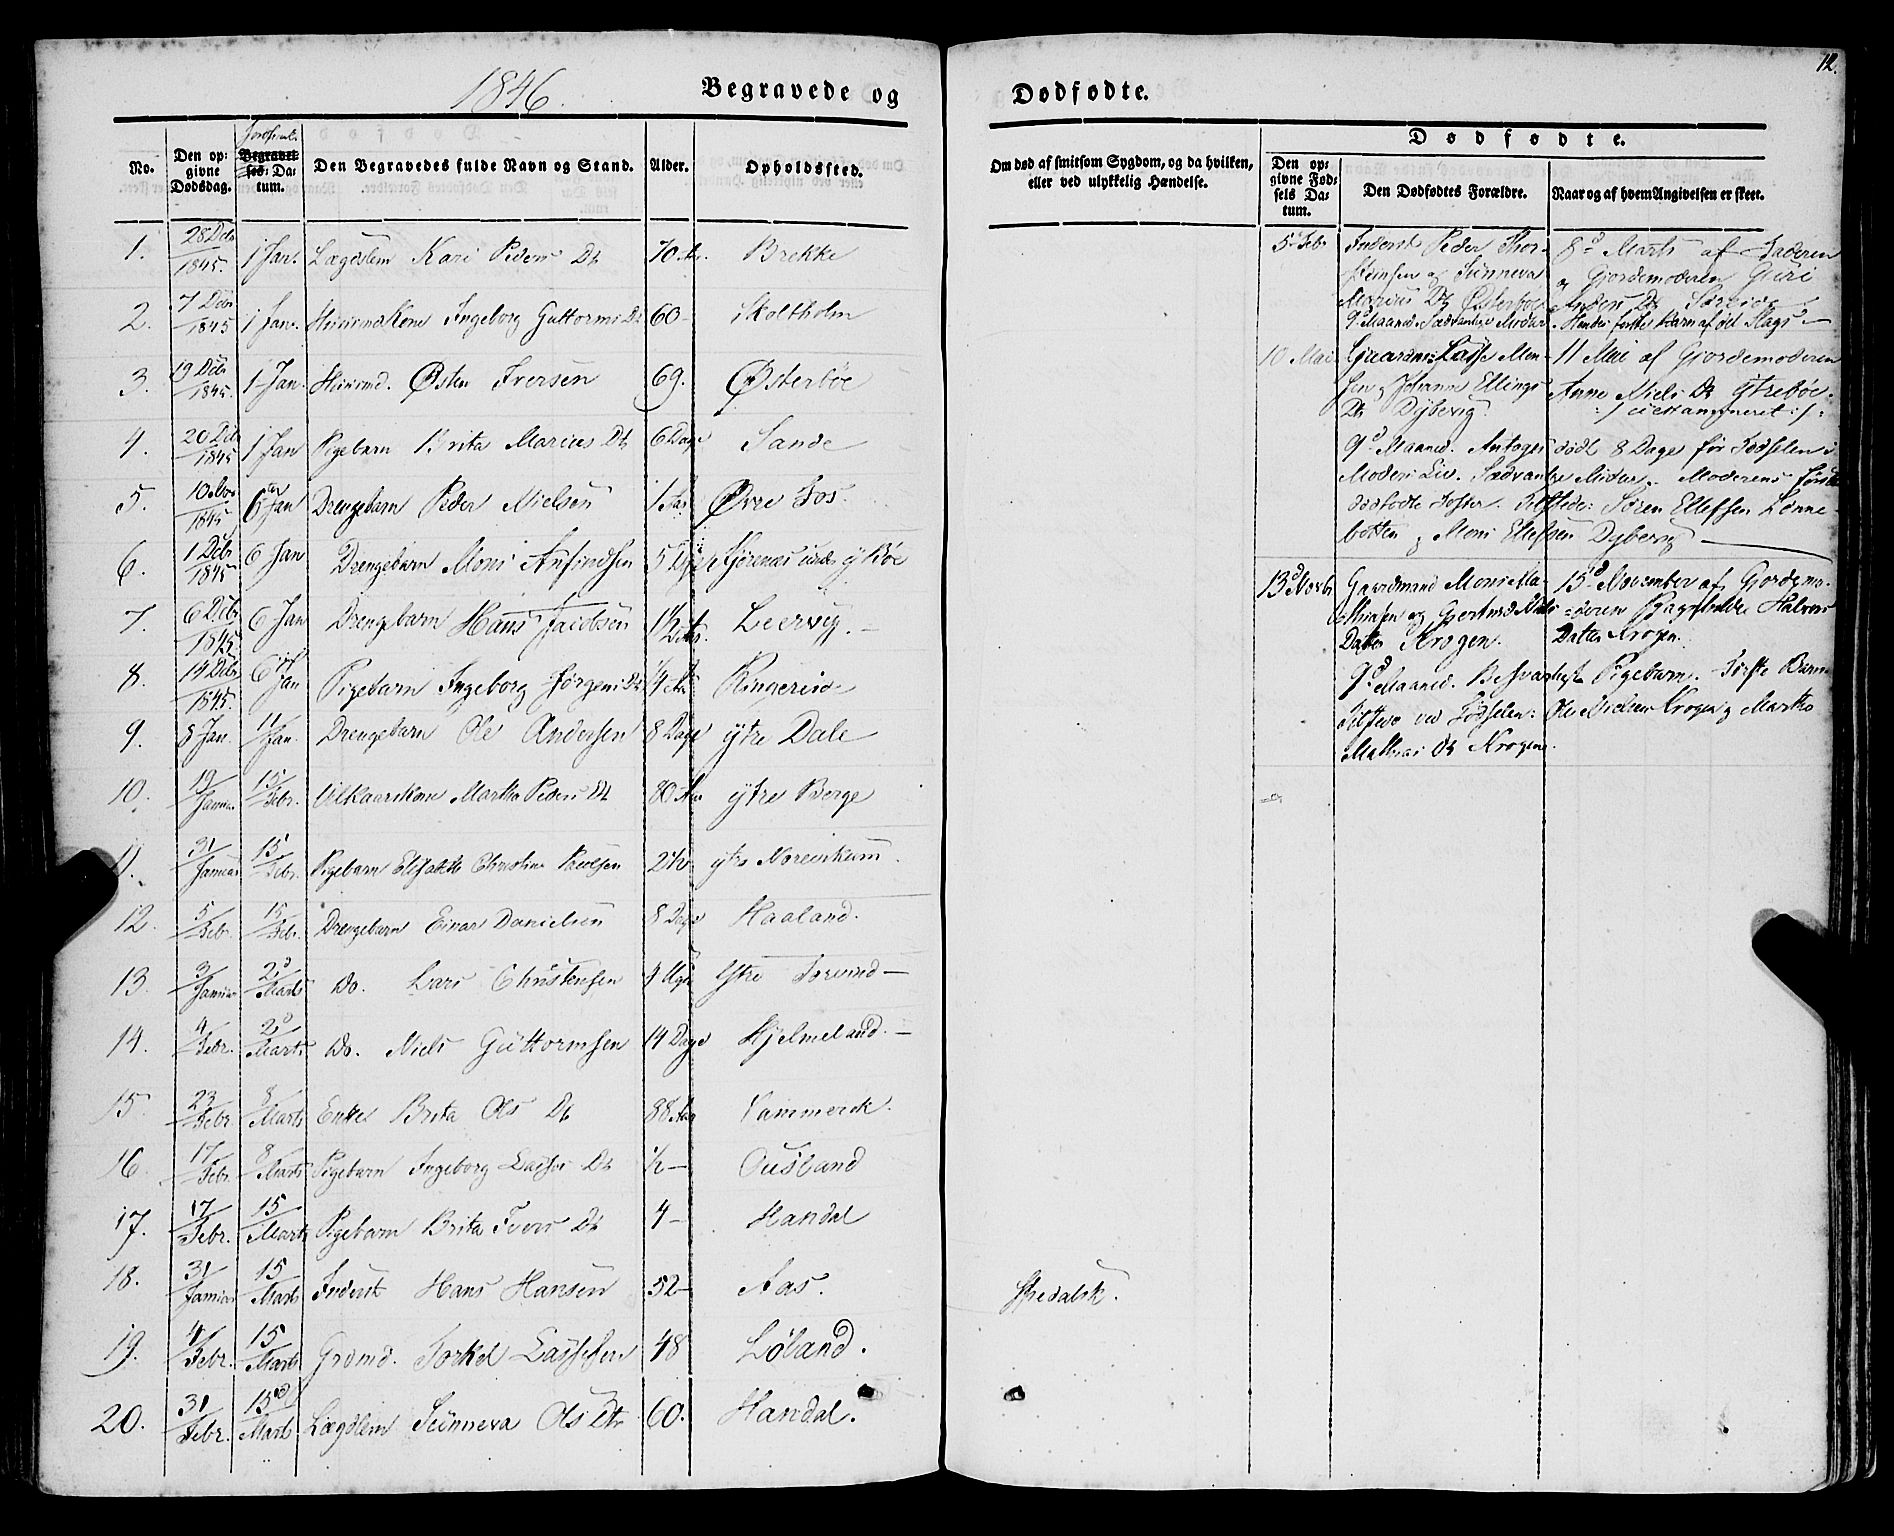 1846.
Begravede og Dødfødte.
12.
No.
Den opgivne Dødsdag.
Begravelses-Datum.
Den Begravedes fulde Navn og Stand.
Alder.
Opholdssted.
Om død af smitsom Sygdom, og da hvilken, eller ved ulykkelig Hændelse.
Dødfødte.
Den opgivne Fødsels Datum.
Den Dødfødtes Forældre.
Naar og af hvem Angivelsen er skeet.
1. 28 Dcbr 1845. 1 Jan. Lægdslem Kari Peders Dt 70 Brekke
2. 7 Dcbr 1845 1 Jan. Huusmdkone Ingeborg Guttorms Dt 60 – Skoltholm
3. 19 Dcbr 1845. 1 Jan. Huusmd. Østen Iversen 69. Østerbøe
4. 20 Dcbr 1845 1 Jan Pigebarn Brita Marius Dt 6 Dage Sande
5. 10 Nov 1845 6 Jan Drengebarn Peder Nielsen 1 Aar Øvre Fos.
6. 1 Dcbr 1845 6 Jan Drengebarn Mons Anfindsen 5 Dage y Bøe
7. 6 Dcbr 1845 6 Jan Drengebarn Hans Jacobsen Leervig. –
8. 14 Dcbr 1845. 6 Jan Pigebarn Ingeborg Jørgens Dt 1/4 Aar Ringereide
9. 8 Jan. 11/Jan. Drengebarn Ole Andersen 8 Dage ytre Dale
10. 19/Januar 15/Febr. Vilkaarskone Martha Peders Dt 80 Aar ytre Berge
11. 31/Januar 15/Febr. Pigebarn Elisabeth Christine Poulsen 2 1/2 ytre Noreviksum.
12. 5/Febr. 15/Febr. Drengebarn Einar Danielsen 8 Dage Haaland.
13. 3/Januar 2d/Marts Do. Lars Christensen Uger Ytre Torsund –
14. 4/Febr. 2d/Marts Do. Niels Guttormsen 14 Dage Hjelmeland. –
15. 23/Febr 8/Marts Enke Brita Ols Dt 88 Aar Vammerek.
16. 17/Febr. 8/Marts Pigebarn Ingeborg Lasses Dt 1/2 – Ousland
17. 17/Febr. 15/Marts Pigebarn Brita Ivers Dt 4 – Handal
18. 31/Januar 15/Marts Inderst Hans Hansen 52 – Aas. Spedalsk.
19. 4/Febr. 15/Marts Grdmd. Torkel Lassesen 48 Løland.
20. 31/Febr. 15d/Marts Lægdslem Sunneva Ols Dtr 60. Handal.
5 Febr Inderst Peder Thor- 8d Marts af Faderen
stensen og Sunneva og Gjordemoderen Guri
Marius Dt Østerbøe Anders Dt Søreide
9d Maaned. Sædvanlige Midler Hendes første Barn af det Slags –
10 Mai Gaardmd Lasse Mon- 11 Mai af Gjordemoderen
sen og Johanne Ellings Anne Niels Dt Ytrebøe.
Dt Dybevig. :/ uexamineret :/:
9d Maaned. Antoges død 8 Dage før Fødselen i
Moders Liv. Sædvanlige Midler. Moderens første
dødfødte Foster. Tilstede: Søren Ellefsen Lønne-
botten og Mons Ellefsen Dybevig
13d Novbr Gaardmand Mons Ma- 15d November af Gjordemo-
thiasen og Gjertrud Niels -deren Ragnhilde Halvors
Datter Krogen. Datter Krogen.
9d Maaned. Besvangret Pigebarn. Første Barn
Tilstede ved Fødselen: Ole Nielsen Krogen og Martha
Mathias Dt Krogen.